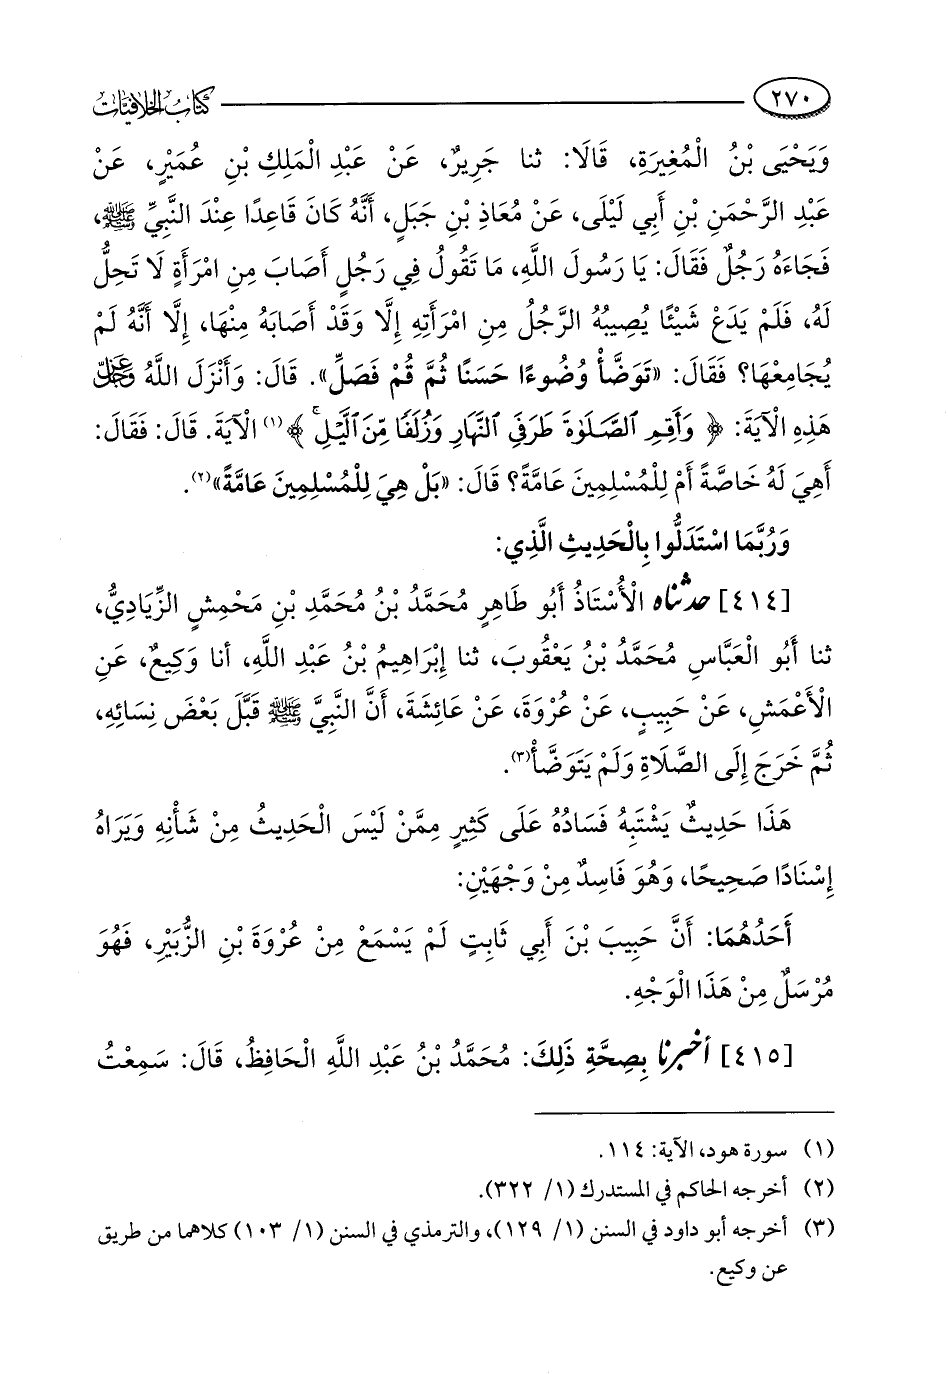 ٢٧٠ كتاب الخلافيات
وَيَحْيَى بْنُ الْمُغِيرَةِ، قَالَا: ثنا جَرِيرٌ، عَنْ عَبْدِ الْمَلِكِ بْنِ عُمَيْرٍ، عَنْ
عَبْدِ الرَّحْمَنِ بْنِ أَبِي لَيْلَى، عَنْ مُعَاذِ بْنِ جَبَلٍ، أَنَّهُ كَانَ قَاعِدًا عِنْدَ النَّبِيِّ ﷺ،
فَجَاءَهُ رَجُلٌ فَقَالَ: يَا رَسُولَ اللَّهِ، مَا تَقُولُ فِي رَجُلٍ أَصَابَ مِنِ امْرَأَةٍ لَا تَحِلُّ
لَهُ، فَلَمْ يَدَعْ شَيْئًا يُصِيبُهُ الرَّجُلُ مِنِ امْرَأَتِهِ إِلَّا وَقَدْ أَصَابَهُ مِنْهَا، إِلَّا أَنَّهُ لَمْ
يُجَامِعْهَا؟ فَقَالَ: «تَوَضَّأْ وُضُوءًا حَسَنًا ثُمَّ قُمْ فَصَلِّ». قَالَ: وَأَنْزَلَ اللَّهُ عَزَّ وَجَلَّ
هَذِهِ الْآيَةَ: ﴿وَأَقِمِ ٱلصَّلَوٰةَ طَرَفَيِ ٱلنَّهَارِ وَزُلَفًا مِّنَ ٱلَّيْلِ ۚ﴾(١) الْآيَةَ. قَالَ: فَقَالَ:
أَهِيَ لَهُ خَاصَّةً أَمْ لِلْمُسْلِمِينَ عَامَّةً؟ قَالَ: «بَلْ هِيَ لِلْمُسْلِمِينَ عَامَّةً»(٢).
وَرُبَّمَا اسْتَدَلُّوا بِالْحَدِيثِ الَّذِي:
[٤١٤] حدثناه الْأُسْتَاذُ أَبُو طَاهِرٍ مُحَمَّدُ بْنُ مُحَمَّدِ بْنِ مَحْمِشٍ الزِّيَادِيُّ،
ثنا أَبُو الْعَبَّاسِ مُحَمَّدُ بْنُ يَعْقُوبَ، ثنا إِبْرَاهِيمُ بْنُ عَبْدِ اللَّهِ، أنا وَكِيعٌ، عَنِ
الْأَعْمَشِ، عَنْ حَبِيبٍ، عَنْ عُرْوَةَ، عَنْ عَائِشَةَ، أَنَّ النَّبِيَّ ﷺ قَبَّلَ بَعْضَ نِسَائِهِ،
ثُمَّ خَرَجَ إِلَى الصَّلَاةِ وَلَمْ يَتَوَضَّأْ(٣).
هَذَا حَدِيثٌ يَشْتَبِهُ فَسَادُهُ عَلَى كَثِيرٍ مِمَّنْ لَيْسَ الْحَدِيثُ مِنْ شَأْنِهِ وَيَرَاهُ
إِسْنَادًا صَحِيحًا، وَهُوَ فَاسِدٌ مِنْ وَجْهَيْنِ:
أَحَدُهُمَا: أَنَّ حَبِيبَ بْنَ أَبِي ثَابِتٍ لَمْ يَسْمَعْ مِنْ عُرْوَةَ بْنِ الزُّبَيْرِ، فَهُوَ
مُرْسَلٌ مِنْ هَذَا الْوَجْهِ.
[٤١٥] أخبرنا بِصِحَّةِ ذَلِكَ: مُحَمَّدُ بْنُ عَبْدِ اللَّهِ الْحَافِظُ، قَالَ: سَمِعْتُ
(١) سورة هود، الآية: ١١٤.
(٢) أخرجه الحاكم في المستدرك (١/ ٣٢٢).
(٣) أخرجه أبو داود في السنن (١/ ١٢٩)، والترمذي في السنن (١/ ١٠٣) كلاهما من طريق
عن وكيع.